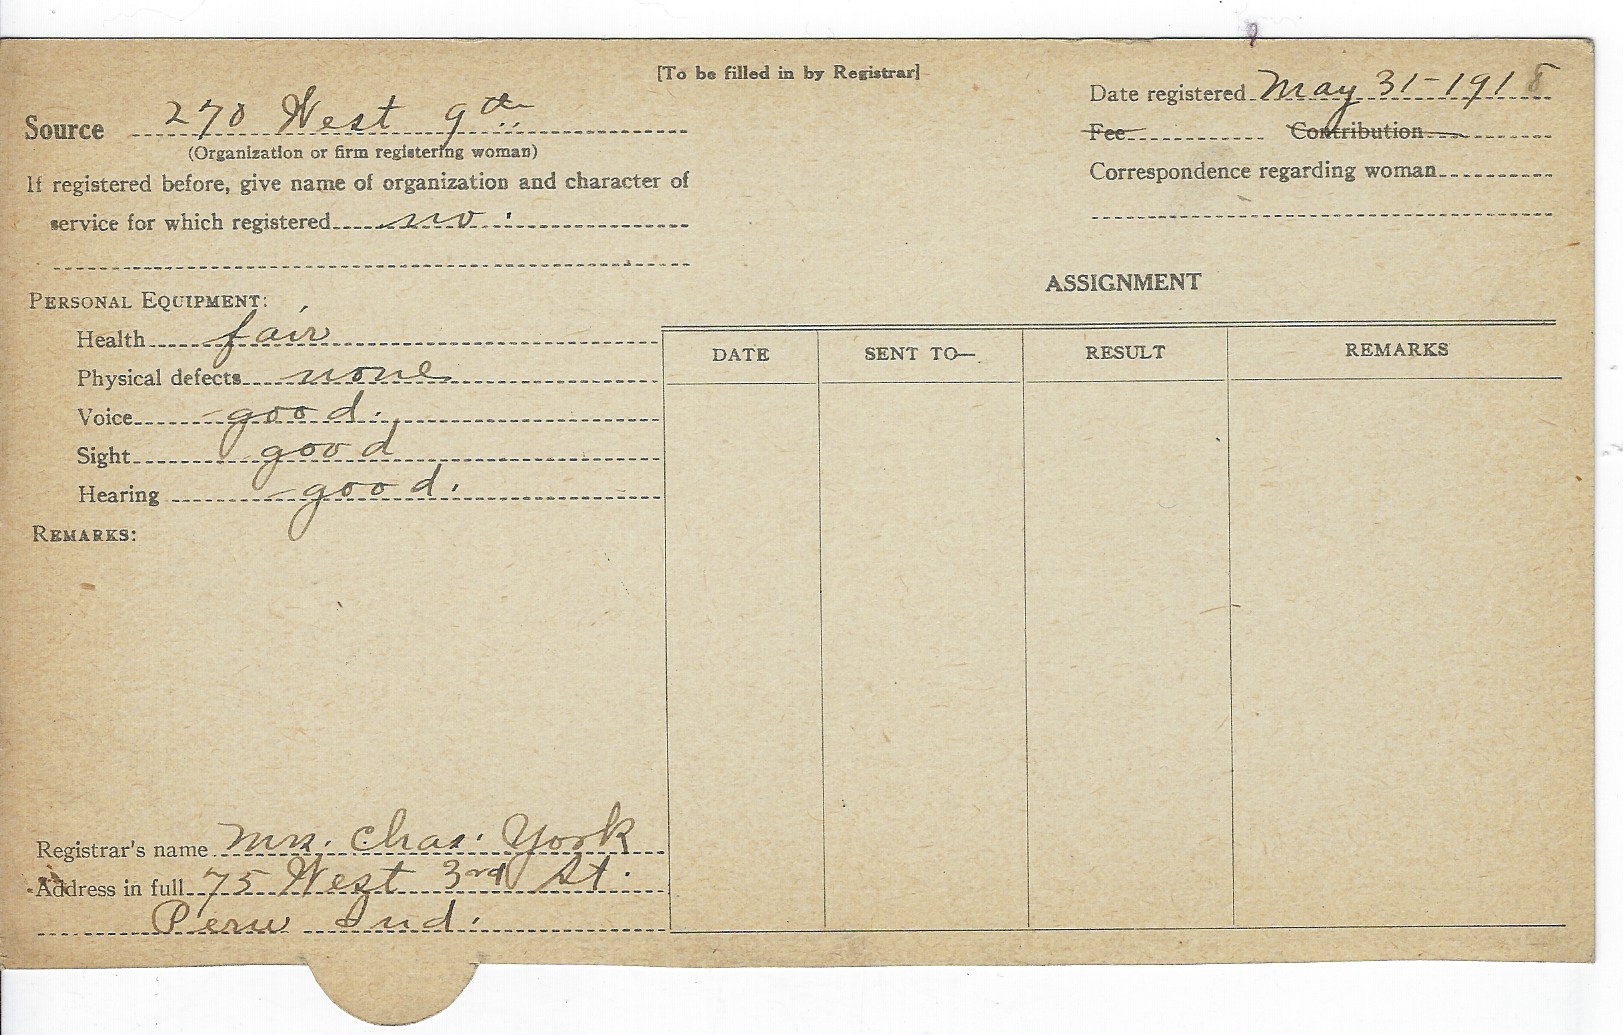 [To be filled in by Registrar]
Source 270 West 9th
(Organization or firm registering woman)
If registered before, give name of organization and character of
service for which registered no.
PERSONAL EQUIPMENT:
Health fair
Physical defects none
Voice good.
Sight good
Hearing good.
REMARKS:
Registrar's name Mrs. Chas. York
Address in full 75 West 3rd St.
Peru Ind.
Date registered May 31-1918
Fee Contribution
Correspondence regarding woman
ASSIGNMENT
DATE SENT TO— RESULT REMARKS